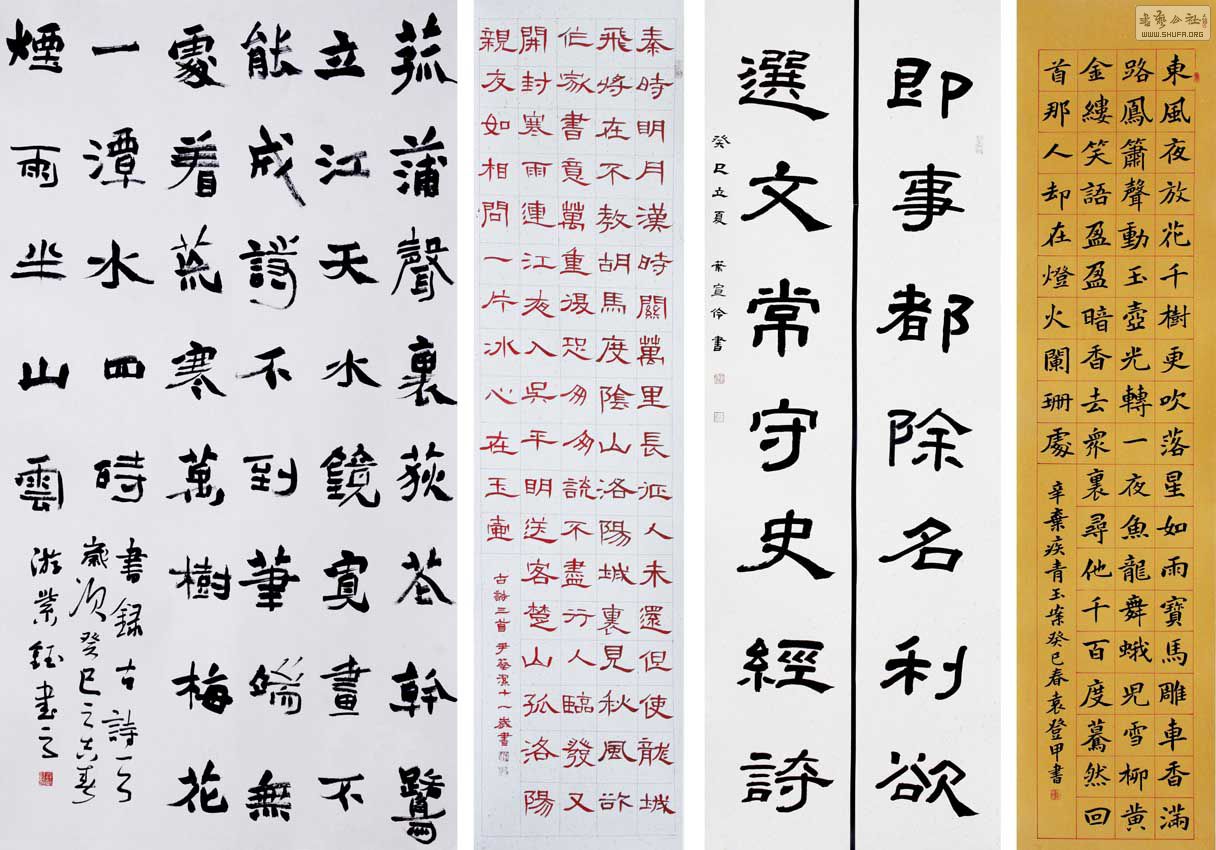 書藝公社
WWW.SHUFA.ORG
東風夜放花千樹更吹落星如雨寶馬雕車香滿
路鳳簫聲動玉壺光轉一夜魚龍舞蛾兒雪柳黃
金縷笑語盈盈暗香去衆裏尋他千百度驀然回
首那人却在燈火闌珊處
辛棄疾青玉案癸巳春袁登甲書
即事都除名利欲
選文常守史經詩
癸巳立夏 葉宣伶書
秦時明月漢時關萬里長征人未還但使龍城
飛將在不教胡馬度陰山洛陽城裏見秋風欲
作家書意萬重復恐匆匆說不盡行人臨發又
開封寒雨連江夜入吳平明送客楚山孤洛陽
親友如相問一片冰心在玉壺
古詩三首 尹藝潔十一歲書
菰蒲聲裏荻花幹鷺
立江天水鏡寬畫不
能成詩不到筆端無
處着荒寒萬樹梅花
一潭水四時
煙雨半山雲
書錄古詩一首
歲次癸巳之春
游紫鈺書之